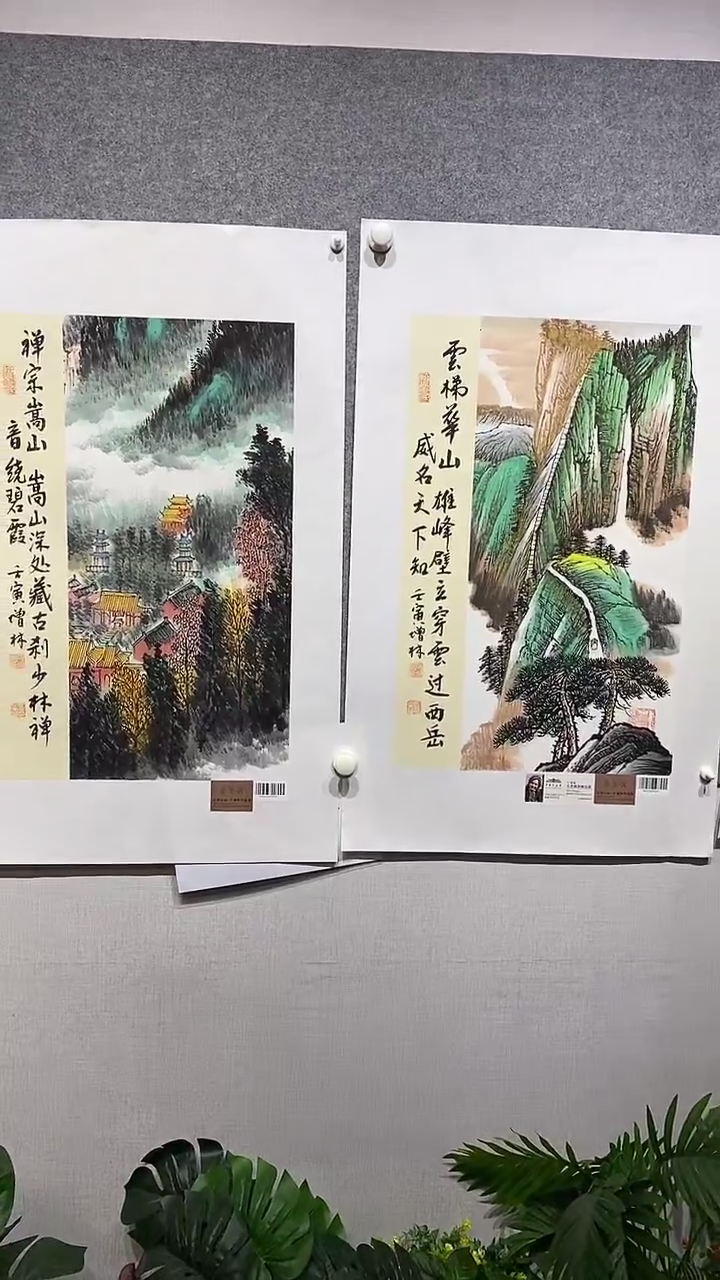 禅宗嵩山 嵩山深处藏古刹少林禅
音绕碧霞 壬寅增林
雲梯華山 雄峰壁立穿雲过西岳
威名天下知 壬寅增林